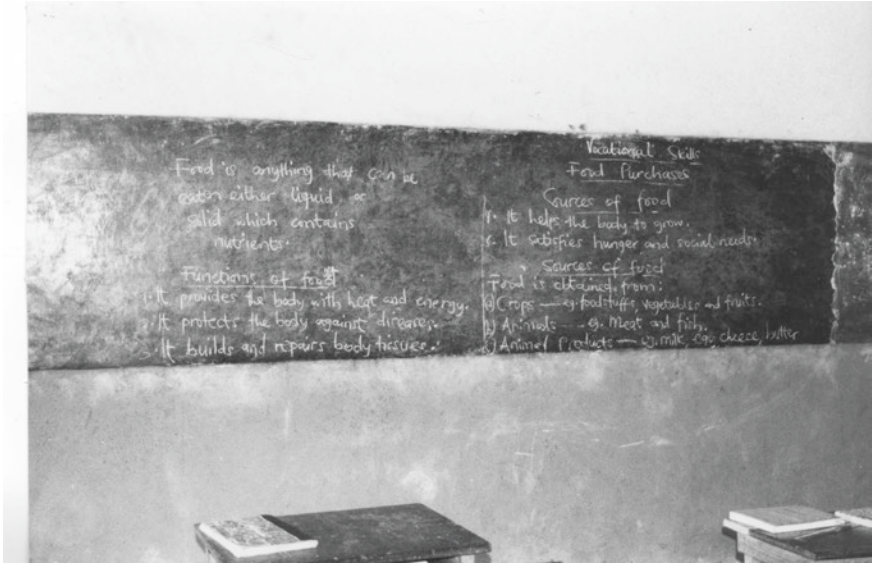 Food is anything that can be
eaten either liquid or
solid which contains
nutrients.
Functions of food
1. It provides the body with heat and energy.
2. It protects the body against diseases.
3. It builds and repairs body tissues.
Vocational Skills
Food Purchases
Sources of food
4. It helps the body to grow.
5. It satisfies hunger and social needs.
Sources of food
Food is obtained from:
a) Crops — eg. foodstuffs, vegetables and fruits.
b) Animals — eg. Meat and fish.
c) Animal Products — eg. milk, egg, cheese, butter